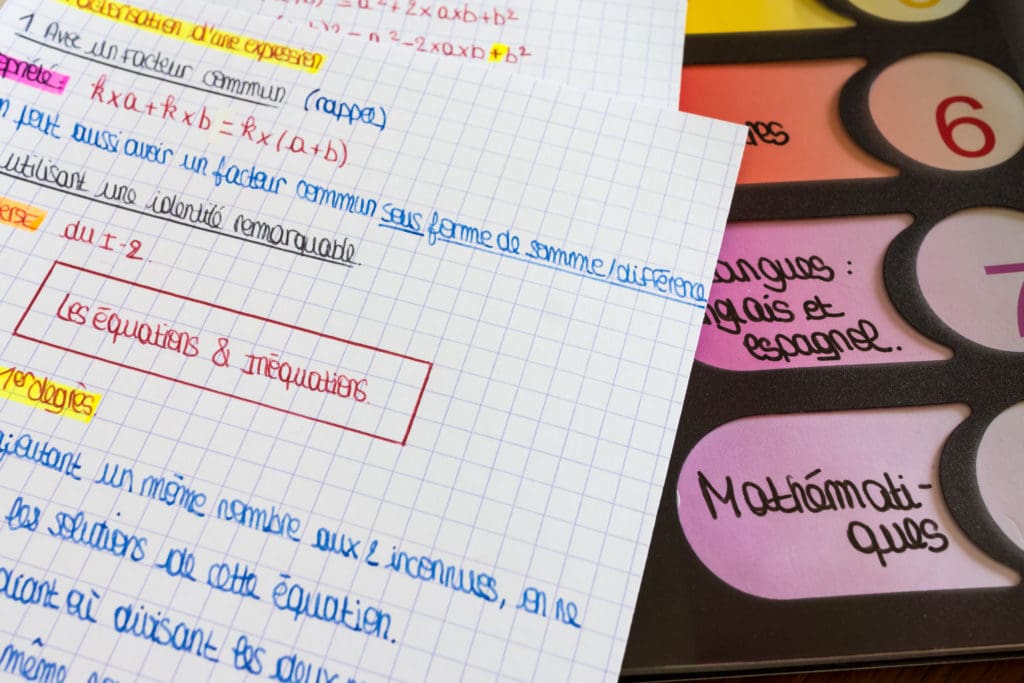 = a²+2×a×b+b²
-2×a×b+b²
Factorisation d'une expression
1 Avec un facteur commun (rappel)
opriété: k×a+k×b=k×(a+b)
n peut aussi avoir un facteur commun sous forme de somme/différence
utilisant une identité remarquable.
du I-2
Les équations & Inéquations.
1er degrès.
ajoutant un même nombre aux 2 inconnues, on ne
les solutions de cette équation.
divisant les deux
même
6
angues :
nglais et
espagnol.
7
Mathémati-
ques